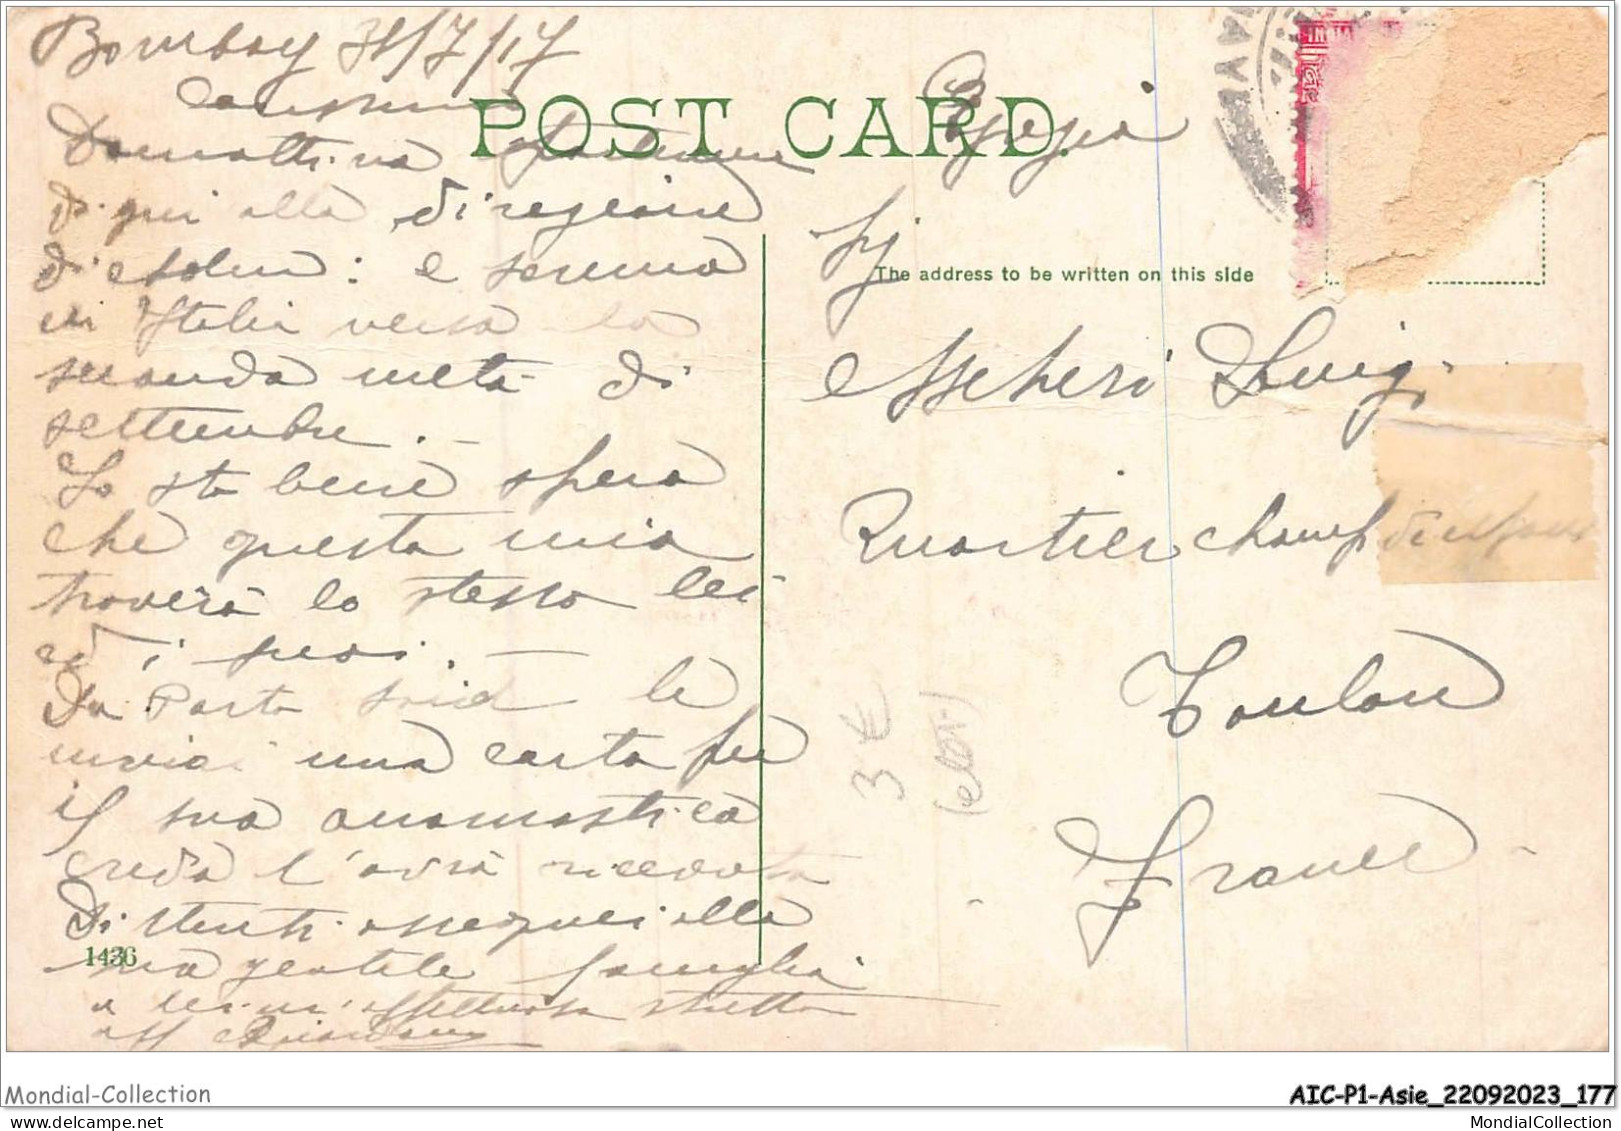 Bombay 31/7/17
Carissimo
Domattina partiremo
di qui alla
di : e saremo
in Italia verso la
seconda metà di
settembre. —
Io sto bene spero
che questa mia
troverà lo stesso lei
ed i suoi. —
Da Porto Said le
inviai una carta per
il suo onomastico
credo l'avrà ricevuta
Distinti ossequi alla
sua gentile famiglia
a lei un'affettuosa stretta
aff
1436
POST CARD.
INDIA
The address to be written on this side
Luigi
Quartier champ de
Toulon
France
3 €
Mondial-Collection
AIC-P1-Asie_22092023_177
MondialCollection